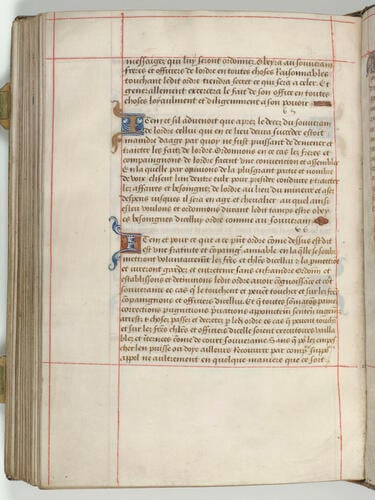 messagiez qui luy seront ordonnez Obeyra au souverain
freres et officiers de lordre en toutes choses Raisonnables
touchant ledit ordre tiendra secret ce qui sera a celer. Et
generallement exercera le fait de son office en toutes
choses loyaulment et diligemment a son pouoir
65
Item et sil advenoit que apres le decez du souverain
de lordre cellui qui en ce lieu devra succeder estoit
maindre daage par quoy ne feust puissant de demener et
traitter les fais de lordre Ordonnons en ce cas les freres et
compaignons de lordre facent une convencion et assemblee
En la quelle par opinions de la plusgrant partie et nombre
de voix elisent lun dentre eulx pour presider conduire et traitter
les affaires et besoingnes de lordre au lieu du mineur et a ses
despens iusques il sera en age et chevalier au quel ainsi
esleu voulons et ordonnons durant ledit tamps estre obey
es besoingnes dicelluy ordre comme au souverain
66
Item et pour ce que a ce pñt ordre cõme dessus est dit
est une fratnite et cõpaignie amiable en la q̃lle se soubz
mettront voluntairemẽt les frẽs et chlrs dicellui la promettront
et iurreront garder et entretenir sans enfraindre Ordonõs et
establissons et determinons ledit ordre avoir cognoissãce et court
souveraine en cas q̃ le touchent et pevẽt touchier et sur les frẽs
cõpaignons et officiers dicellui Et q̃ toutes sõmatõns paines
corrections pugnitions privations appointemẽs sentẽces iugemẽs
arrestz et choses passez et decretez p ledit ordre es cas q̃ pevent touchier
et sur les frẽs chlrs et officiers dicelle soient executoires vailla
bles et tenues cõme de court souveraine Sans q̃ p les empes
chier len puisse ou doye ailleurs Recourir par comp̃ supp̃
appel ne aultrement en quelque maniere que ce soit